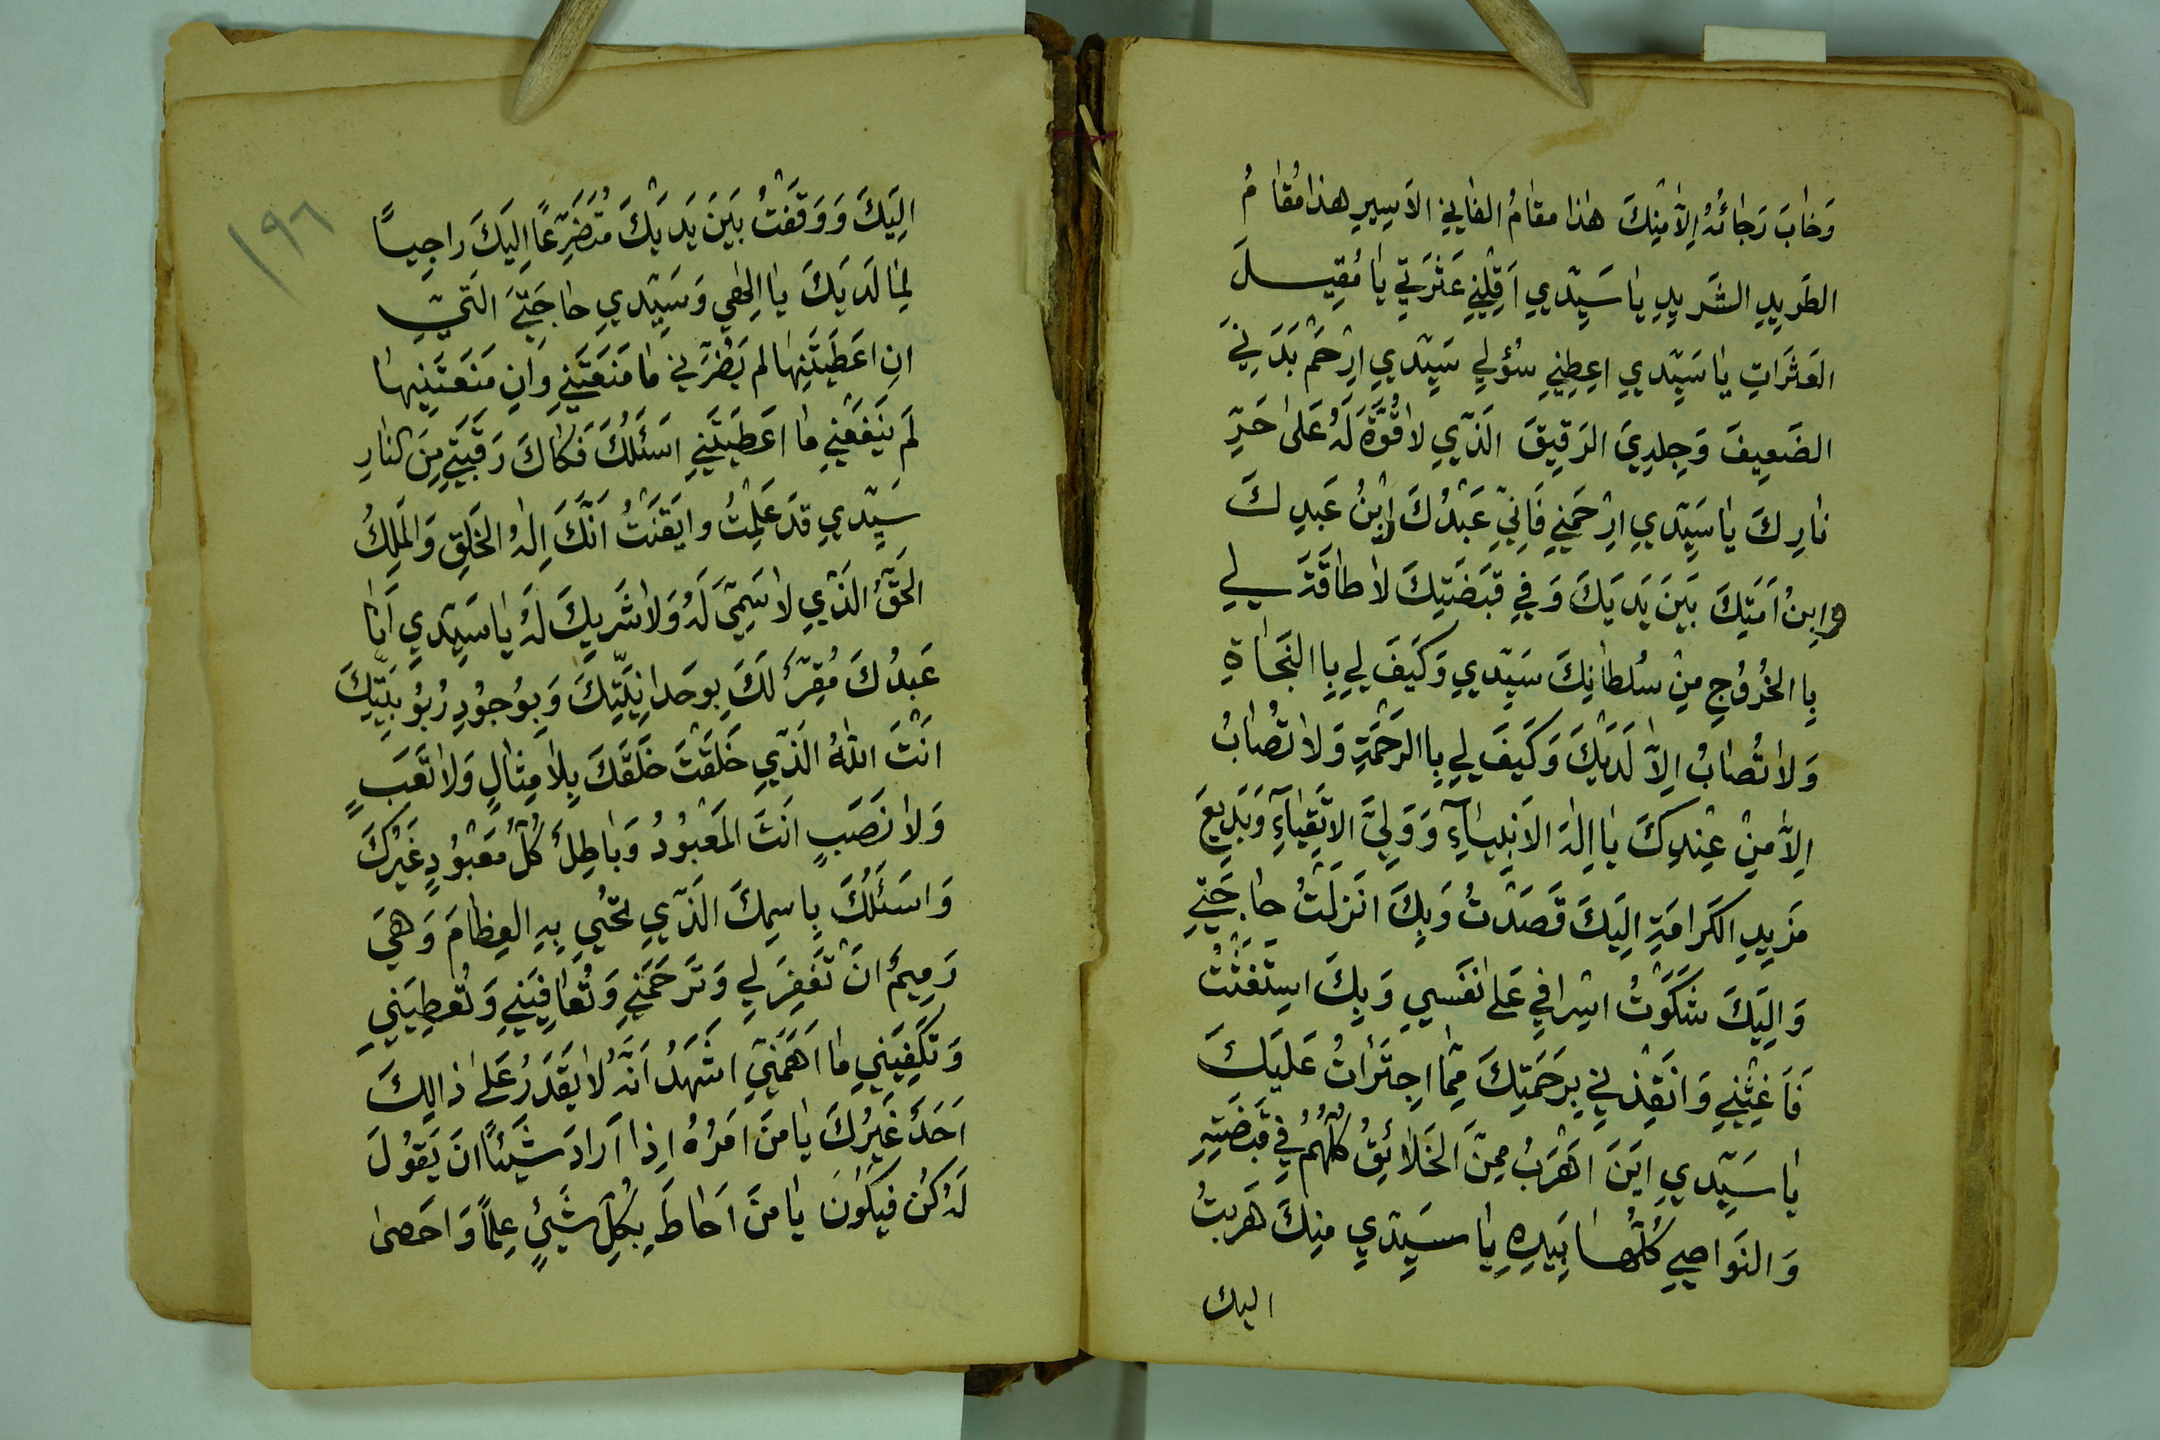 وَخٰابَ رَجٰائُهُ اِلاّٰ مِنْكَ هٰذا مقٰامُ الفٰانِي الاَسِيرِ هذا مُقٰامُ
الطَرِيدِ الشَرِيدِ يٰا سَيِّدِي اَقِلْنِي عَثْرَتِي يٰا مُقِيلَ
العَثَرَاتِ يٰا سَيِّدِي اعِطِنِي سُؤلِي سَيِّدِي ارْحَمْ بَدَنِيَ
الضَعِيفَ وَجِلدِيَ الرَقِيقَ الذّي لاٰ قُوَّةَ لَهُ عَلىٰ حَرِّ
نٰارِكَ يٰا سَيِّدِي ارْحَمنِي فَاِنّي عَبْدُكَ وابْنُ عَبدِكَ
وابِنُ اَمَتِكَ بَينَ يَدَيكَ وَفِي قَبضَتِكَ لاٰ طٰاقَةَ لِي
بِا الخُرُوُجِ مِنْ سُلطٰانِكَ سَيّدي وَكَيفَ لِي بِا النَجَاةِ
وَلاٰ تُصٰابُ اِلاّٰ لَدَيْكَ وَكَيفَ لِي بِا الرَحْمَةِ وَلاٰ تُصٰابُ
اِلاّٰ مِنْ عِنْدِكَ يٰا اِلٰهَ الاَنبِيٰآءِ وَوَلِيَّ الاَتقِيٰآءِ وَبَدِيعَ
مَزِيدِ الكَرامَةِ اِلَيكَ قَصَدْتُ وَبِكَ انَزلَتُ حٰاجَتِي
وَاِلَيكَ شَكَوْتُ اسْرافِي عَلىٰ نَفسِي وَبِكَ استَغَثْتُ
فَاَغِثْنِي وَانقِذنِي بِرَحمَتِكَ مِمّٰا اجتَرَاتُ عَلَيكَ
يٰا سَيِّدِي اَينَ اهَرَبُ مِمَّنَ الخَلاٰئِقُ كُلُّهُمُ فِي قَبضَتِهِ
وَالنَواصِي كُلُّهٰا بِيَدِهِ يٰا سَيّدي مِنكَ هَربتُ
اليك
١٩٦
اِلَيكَ وَوَقَفتُ بَينَ يَدَيْكَ مُتَضَرِّعًا اِلَيكَ راجِيًا
لِمٰا لَدَيكَ يٰا اِلٰهِي وَسَيِّدِي حٰاجَتِيَ الَتّي
اِن اَعطَيتَنِيهٰا لم يَضُرَّنِي مٰا مَنَعتَنِي وَاِن مَنَعتَنِيهٰا
لَم يَنفَعنِي مٰا اعَطَيتَنِي اَسئَلُكَ فَكٰاكَ رَقَبَتِي مِنَ النٰارِ
سَيّدي قَد عَلِمْتُ وايَقَنتُ اَنَّكَ اِلٰهُ الخَلقِ وَالمَلِكُ
الحَقُّ الذَّي لاٰ سَمِيَّ لَهُ وَلاٰ شَريكَ لَهُ يٰا سَيّدي اَنَا
عَبدُكَ مُقِرٌّ لَكَ بِوحَدانِيَّتِكَ وَبِوُجُودِ رُبُوبِيَّتِكَ
انَتَ اللهُ الَذّي خَلَقتَ خَلقَكَ بِلاٰ مِثٰالٍ وَلاٰ تَعَبٍ
وَلاٰ نَصَبٍ انَتَ المَعْبُوُدُ وَبٰاطِلٌ كُلُّ مَعبُودٍ غَيرُكَ
وَاسَئَلُكَ بِاسمِكَ الَذّي تُحيِي بِهِ العِظٰامَ وَهيَ
رَمِيمٌ انَ تَغفِرَ لِي وَتَرحَمَنِي وَتُعٰافِيَنِي وَتُعطِيَنِي
وَتَكفِيَنِي مٰا اَهَمَّنِي اشَهَدُ اَنَّهُ لاٰ يَقدَرُ عَلىٰ ذالِكَ
اَحَدٌ غَيرُكَ يٰا مَنَ امَرُهُ اِذا اَرادَ شَيئًا انَ يَقوُلَ
لَهُ كُن فَيَكوُنَ يٰا مَن اَحٰاطَ بِكُلِّ شَئٍ عِلمًا وَاحَصىٰ